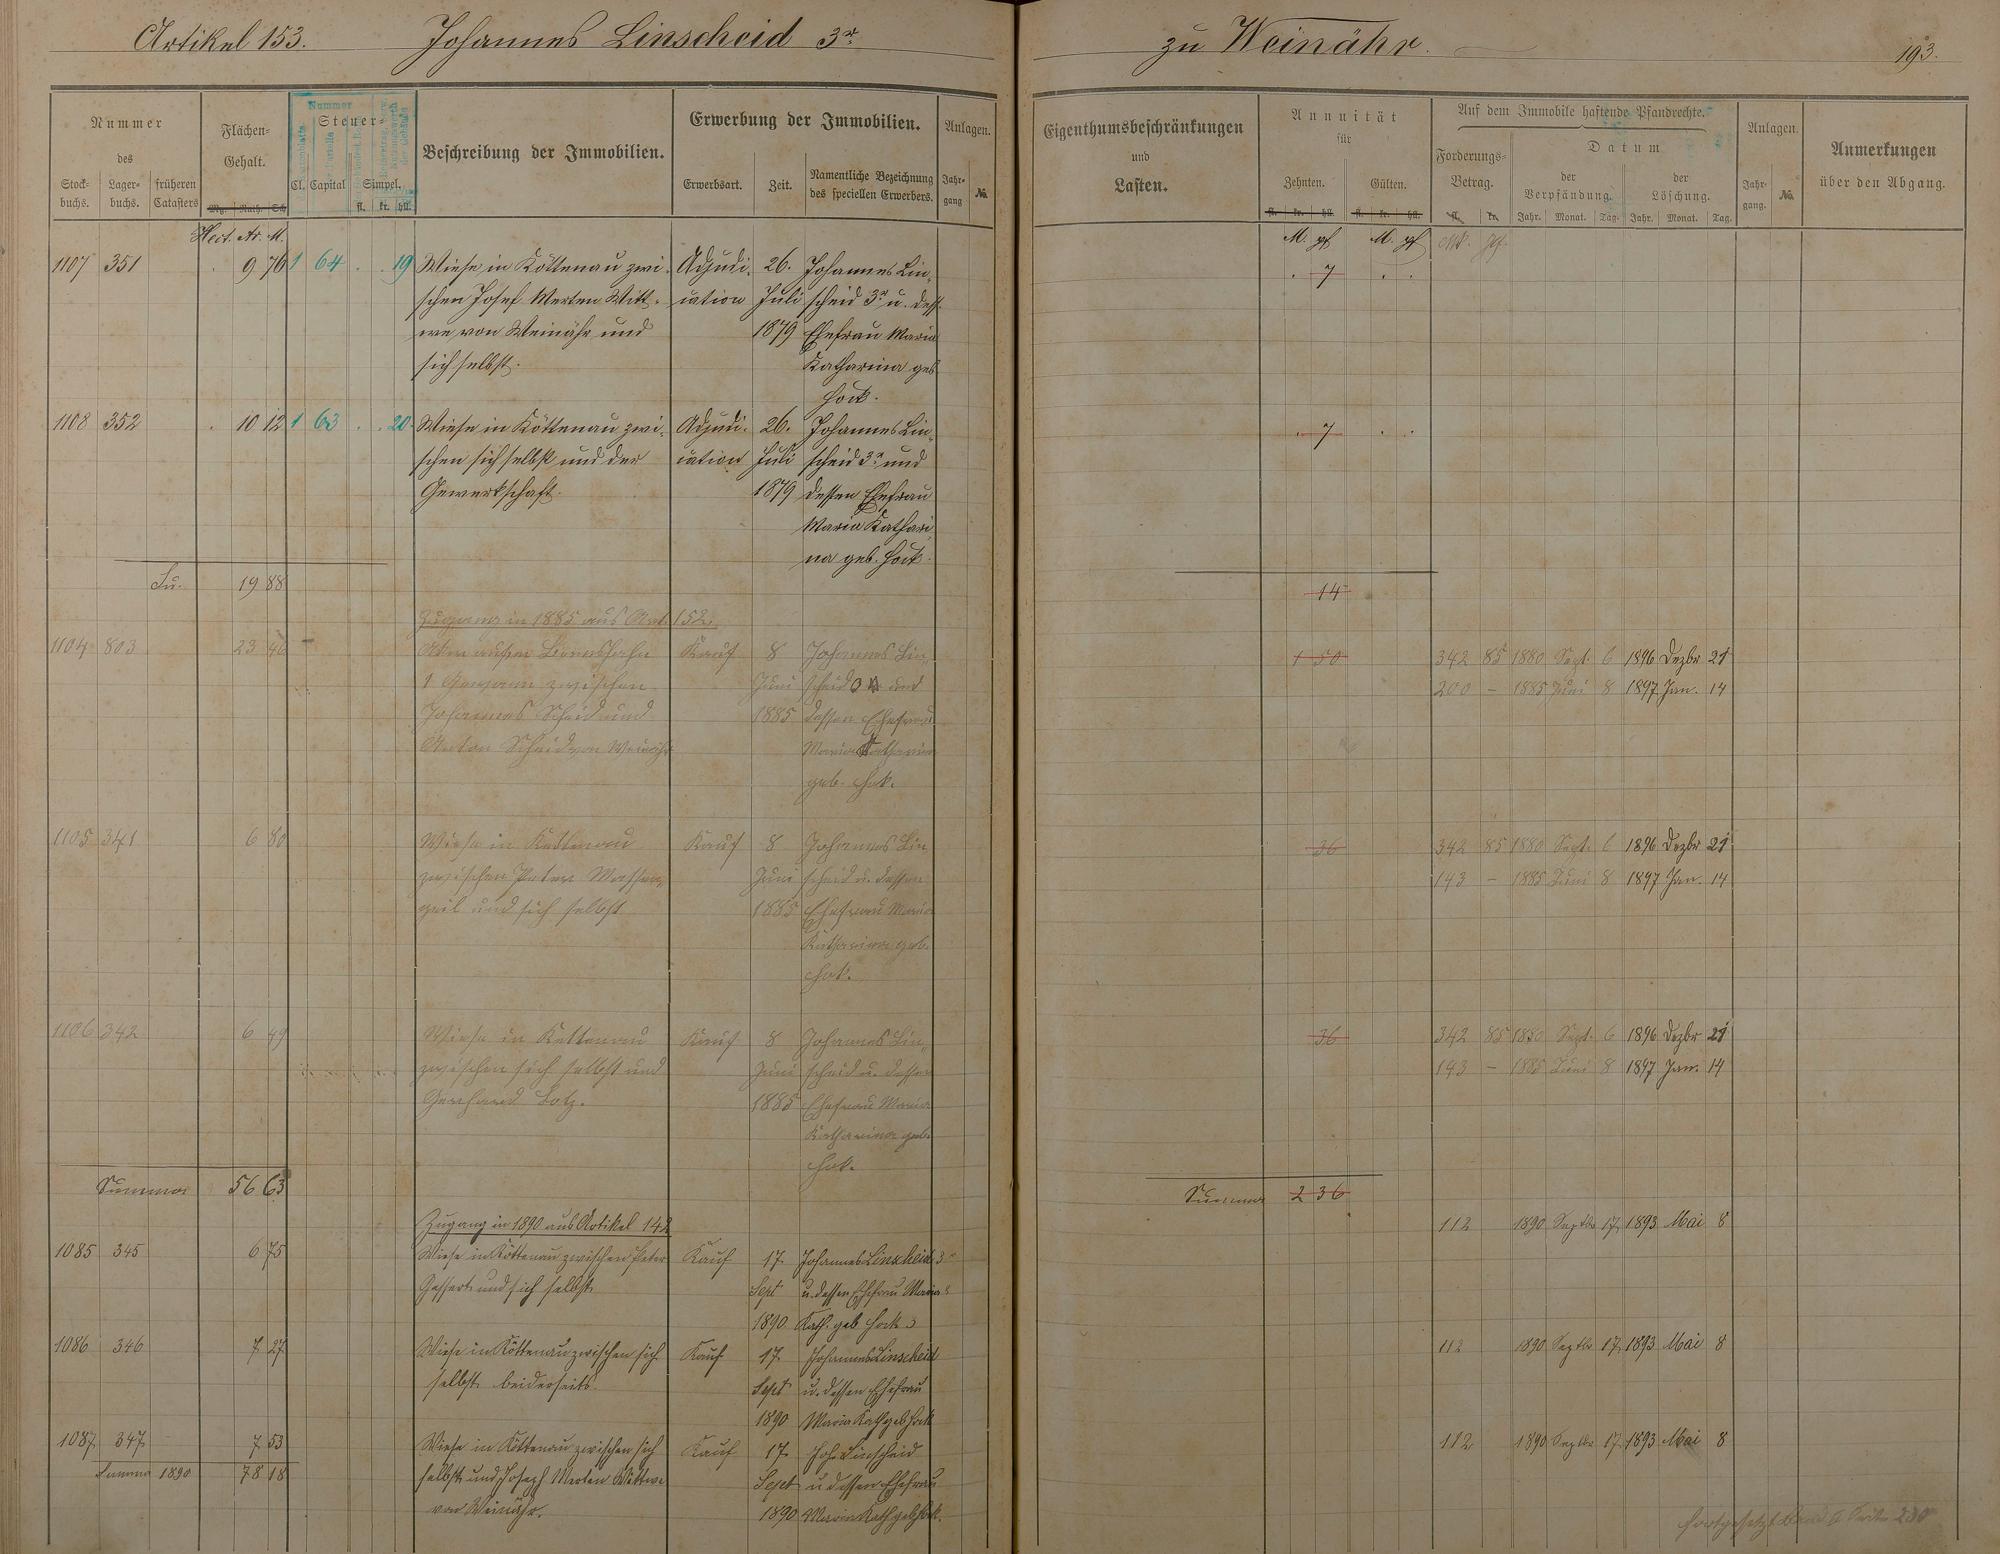 Artikel 153. Johannes Linscheid 3r. zu Weinähr. 193.
Nummer des
Stock-buchs. Lager-buchs. früheren Catasters
Flächen-Gehalt.
Mg. Ruth. Sch
Nummer
Steuer-
Cl. Capital Simpel.
fl. kr. hll.
Beschreibung der Immobilien.
Erwerbung der Immobilien.
Erwerbsart. Zeit. Namentliche Bezeichnung des speciellen Erwerbers.
Anlagen.
Jahr-gang No.
Eigenthumsbeschränkungen
und
Lasten.
Annuität
für
Zehnten. Gülten.
fl. kr. hll. fl. kr. hll.
Auf dem Immobile haftende Pfandrechte.
Forderungs-Betrag.
fl. kr.
Datum
der Verpfändung. der Löschung.
Jahr. Monat. Tag. Jahr. Monat. Tag.
Anlagen.
Jahr-gang. No.
Anmerkungen
über den Abgang.
Hect. Ar. M. M. pf M. pf Mk. pf.
1107 351 9 76 1 64 19 Wiese in Köttenau zwi- Adjudi- 26. Johannes Lin- 7
schen Josef Merten Witt- cation Juli scheid 3r u. dess.
we von Weinähr und 1879 Ehefrau Maria
sich selbst. Katharina geb
Hock.
1108 352 10 12 1 63 20 Wiese in Köttenau zwi- Adjudi- 26. Johannes Lin- 7
schen sich selbst und der cation Juli scheid 3r und
Gewerkschaft. 1879 dessen Ehefrau
Maria Kathari-
na geb. Hock.
Su. 19 88 14
Zugang in 1885 aus Art. 152.
1104 803 23 46 Kauf 8 Johannes Lin- 1 50 342 85 1880 Sept. 6 1896 Dezbr 21
1 Gewann zwischen Juni scheid und 200 – 1885 Juni 8 1897 Jan. 14
Johannes Scheid und 1885 dessen Ehefrau
Anton Scheid von Weinähr Maria Katharina
geb. Hock.
1105 341 6 80 Wiese in Kettenau Kauf 8 Johannes Lin- 36 342 85 1880 Sept. 6 1896 Dezbr 21
zwischen Peter Juni scheid u. dessen 143 – 1885 Juni 8 1897 Jan. 14
und sich selbst 1885 Ehefrau Maria
Katharina geb.
Hock.
1106 342 6 49 Wiese in Kettenau Kauf 8 Johannes Lin- 36 342 85 1880 Sept. 6 1896 Dezbr 21
zwischen sich selbst und Juni scheid u. dessen 143 – 1885 Juni 8 1897 Jan. 14
Gerhard Lotz. 1885 Ehefrau Maria
Katharina geb.
Hock.
Summa 56 63 Summa 2 36
Zugang in 1890 aus Artikel 142 112 1890 Septbr 17 1893 Mai 8
1085 345 6 75 Wiese in Köttenau zwischen Peter Kauf 17. Johannes Linscheid 3r
und sich selbst Sept u. dessen Ehefrau Maria
1890 Kath. geb Hock
1086 346 7 27 Wiese in Köttenau zwischen sich Kauf 17. Johannes Linscheid 112 1890 Septbr 17 1893 Mai 8
selbst beiderseits. Sept u. dessen Ehefrau
1890 Maria Kath geb Hock
1087 347 7 53 Wiese in Köttenau zwischen sich Kauf 17. Joh. Linscheid 112 1890 Septbr 17 1893 Mai 8
Summa 1890 78 18 selbst und Joseph Merten Wittwe Sept u dessen Ehefrau
von Weinähr. 1890 Maria Kath geb Hock.
fortgesetzt Band II Seite 230